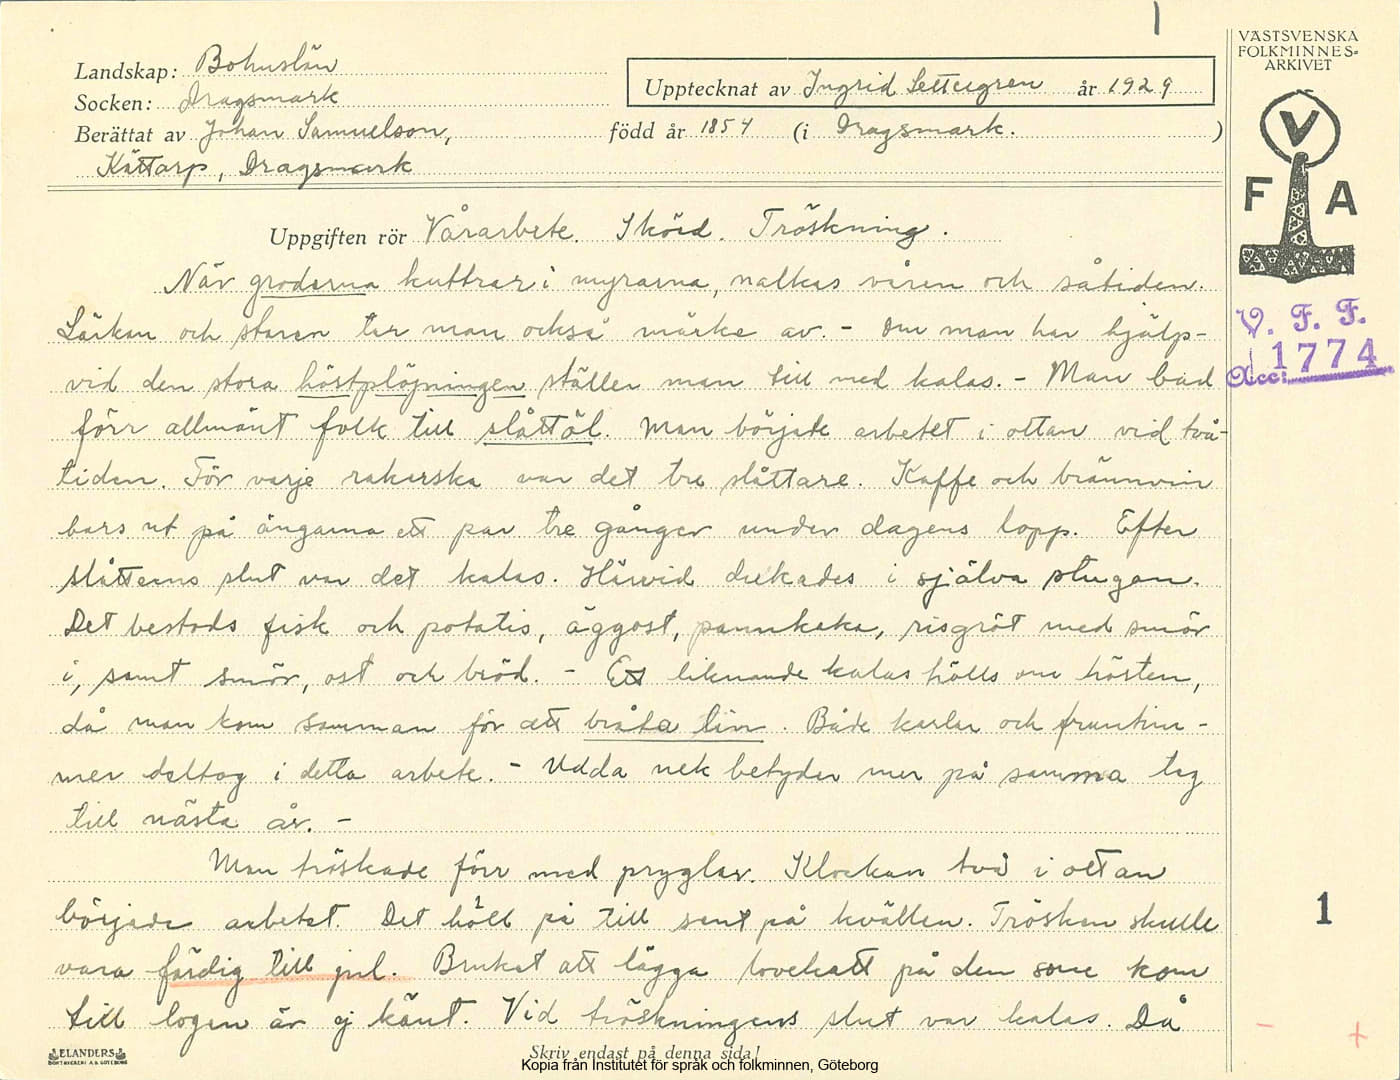 1
Landskap: Bohuslän
Socken: Dragsmark
Upptecknat av Ingrid Settergren år 1929
Berättat av Johan Samuelson, född år 1854 (i Dragsmark. )
Kättarp, Dragsmark
VÄSTSVENSKA
FOLKMINNES=
ARKIVET
V
F A
V. F. F.
Acc: 1774
Uppgiften rör Vårarbete. Skörd. Tröskning.
När grodorna kuttrar i myrarna, nalkas våren och såtiden.
Lärkan och staren tar man också märke av. - Om man har hjälp
vid den stora höstplöjningen ställer man till med kalas. - Man bad
förr allmänt folk till slåttöl. Man började arbetet i ottan vid två-
tiden. För varje rakerska var det tre slåttare. Kaffe och brännvin
bars ut på ängarna ett par tre gånger under dagens lopp. Efter
slåtterns slut var det kalas. Härvid dukades i själva stugan.
Det bestods fisk och potatis, äggost, pannkaka, risgröt med smör
i, samt smör, ost och bröd. - Ett liknande kalas hölls om hösten,
då man kom samman för att bråta lin. Både karlar och fruntim-
mer deltog i detta arbete. - Udda nek betyder mer på samma teg
till nästa år. -
Man tröskade förr med pryglar. Klockan två i ottan
började arbetet. Det höll på till sent på kvällen. Trösken skulle
vara färdig till jul. Bruket att lägga lovekatt på den som kom
till logen är ej känt. Vid tröskningens slut var kalas. Då
1
ELANDERS
BOKTRYCKERI A.B. GÖTEBORG
Skriv endast på denna sida!
Kopia från Institutet för språk och folkminnen, Göteborg